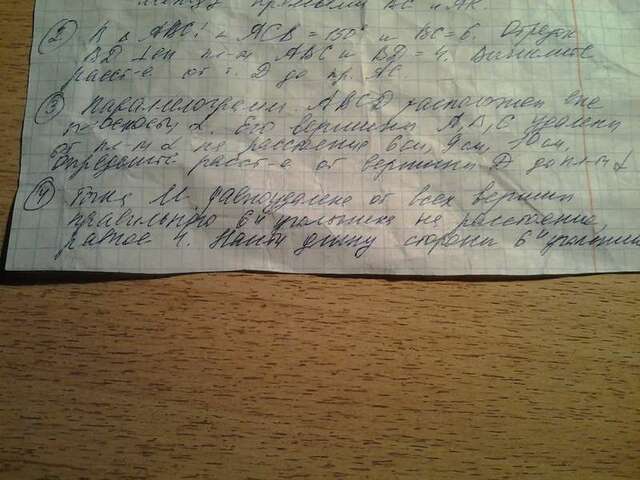 между прямыми ВС и АК.
② В Δ АВС: ∠ АСВ = 150° и ВС = 6. Отрезок
ВД ⊥ен пл-ти АВС и ВД = 4. Вычислите
расст-е от т. Д до пр. АС.
③ Параллелограмм АВСД расположен вне
плоскости α. Его вершины А, В, С удалены
от пл-ти α на расстояние 6 см, 9 см, 10 см.
Определить расст-е от вершины Д до пл-ти α
④ Точка М равноудалена от всех вершин
правильного 6ти угольника на расстояние,
равное 4. Найти длину стороны 6ти угольника